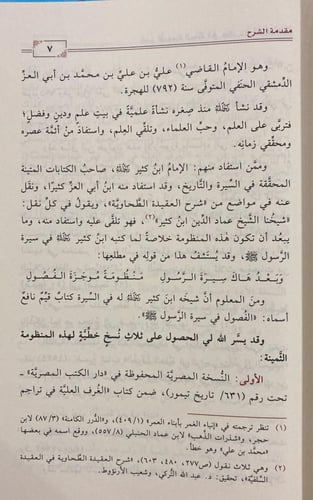 مقدمة الشرح
٧
وهو الإمامُ القـاضـي(١) عليُّ بن عليِّ بن محمـد بن أبي العزِّ
الدِّمشقي الحنَفي المتوفَّى سنة (٧٩٢) للهجرة.
وقد نشأ ﷺ منذ صِغره نشأةً علميَّةً في بيتِ علم ودينٍ وفضلٍ؛
فتربَّى على العلم، وحبِّ العلماء، وتلقّي العِلم، واستفادَ منْ أئمَّة عصره
ومحقِّقي زمانه.
وممَّن استفاد منهم: الإمامُ ابنُ كثير رحمه الله، صاحبُ الكتابات المتينة
المحقَّقة في السِّيرة والتَّاريخ، وقد استفاد منه ابنُ أبي العزِّ كثيرًا، ونقَل
عنه في مواضع من «شرح العقيدة الطَّحاوِيَّة»، ويقولُ في كلِّ نقل:
«شيخُنا الشَّيخ عماد الدِّين ابنُ كثير»(٢)، فهو تلقَّى عليه واستفاد منه، وما
يبعُد أن تكون هٰذه المنظومة خلاصةً لما كتبه ابنُ كثير رحمه الله في سيرة
الرسول ﷺ، وقد يُستَشَفُّ هذا من قوله في مطلعها:
وَبَـعْـدُ هَـاكَ سِـيـرَةَ الرَّسُولِ مَنْظُومَـةً مُوجَـزَةَ الفُصُولِ
ومن المعلوم أنَّ شيخَه ابنَ كثير رحمه الله له في السِّيرة كتابٌ قيِّمٌ نافعٌ
أسماه: «الفُصول في سيرة الرَّسول ﷺ».
وقد يسَّر الله لي الحصول على ثلاثِ نُسخٍ خطِّيَّةٍ لهذه المنظومة
الثَّمينة:
الأولى: النُّسخة المصريَّة المحفوظة في «دار الكتب المصريَّة» ـ
تحت رقم (٦٣١/ تاريخ تيمور)، ضمن كتاب «الغُرف العليَّة في تراجم
(١) تنظر ترجمته في «إنباء الغمر بأبناء العمر» (٤٠٩/١)، و«الدُّرر الكامنة» (٨٧/٣) لابن
حجر، و«شذرات الذَّهب» لابن عماد الحنبلي (٥٥٧/٨)، ووقع اسمه في بعضها
«محمَّد بن علي» وهو خطأ.
(٢) وهي ثلاث نقول (ص٢٧٧، ٤٨٠، ٦٠٣)، «شرح العقيدة الطَّحاوية في العقيدة
السَّلفيَّة»، تحقيق: د. عبد الله التُّركي، وشعيب الأرنؤوط.